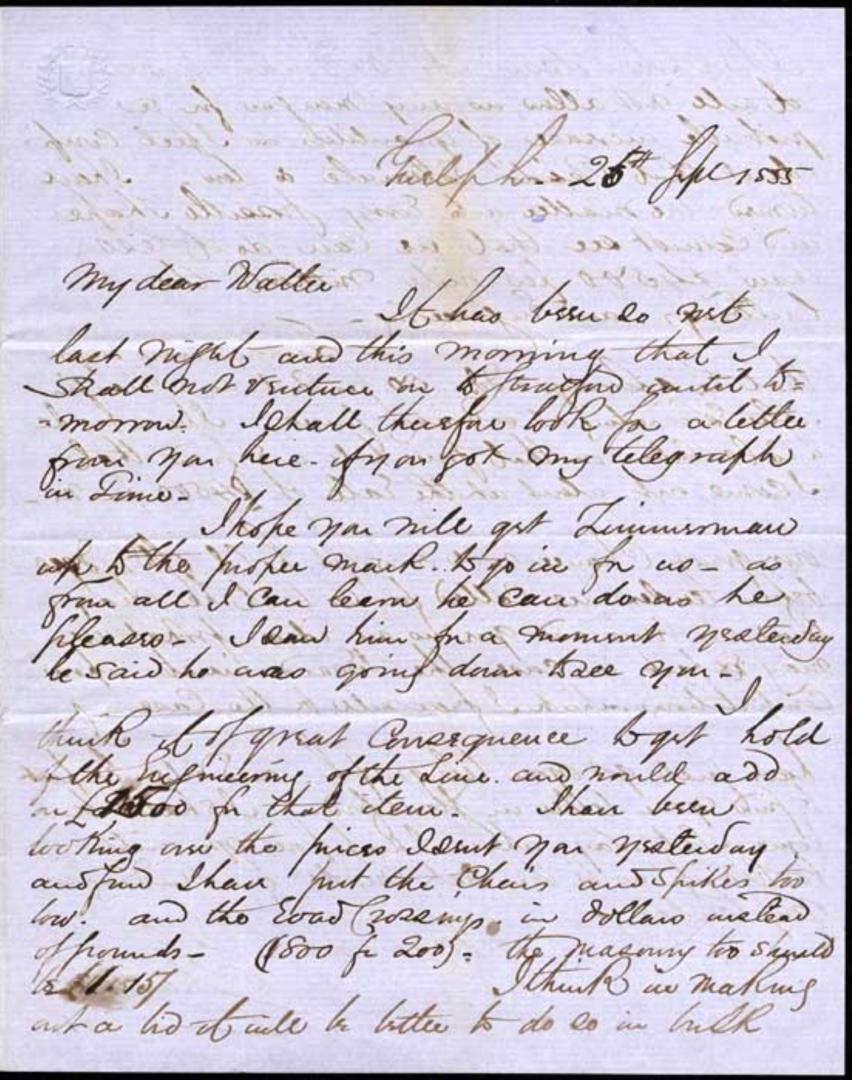 Guelph. 25th Sept 1855
My dear Walter
It has been so wet
last night and this morning that I
shall not venture on to Stratford until to=
=morrow. I shall therefore look for a letter
from you here - if you got my telegraph
in Time -
I hope you will get Zimmerman
up to the proper mark. to go in for us - as
from all I can learn he can do as he
pleases - I saw him for a moment yesterday
he said he was going down to see you -
I
think it of great Consequence to get hold
of the Engineering of the Line. and would add
on £ 1500 for that item. I have been
looking over the prices I sent you yesterday
and find I have put the Chairs and Spikes too
low. and the Road Crossings. in dollars instead
of pounds - (800 for 200) - the masonry too should
be 1.15/ I think in making
out a bid it will be better to do so in bulk